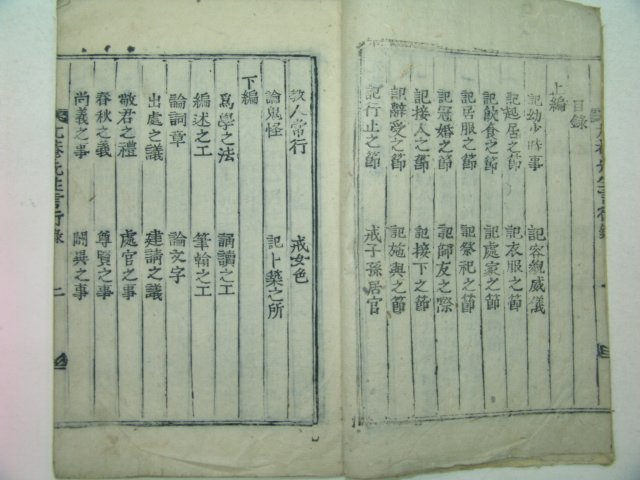 目錄
上編
記幼少時事 記容貌威儀
記起居之節 記衣服之節
記飮食之節 記處家之節
記居服之節 記祭祀之節
記冠婚之節 記師友之際
記接人之節 記接下之節
記辭受之節 記施與之節
記行止之節 戒子孫居官
敎人常行 戒女色
論鬼怪 記卜築之所
下編
爲學之法 誦讀之工
編述之工 筆翰之工
論詞章 論文字
出處之議 建請之議
敬君之禮 處官之事
春秋之義 尊賢之事
尚義之事 闢異之事